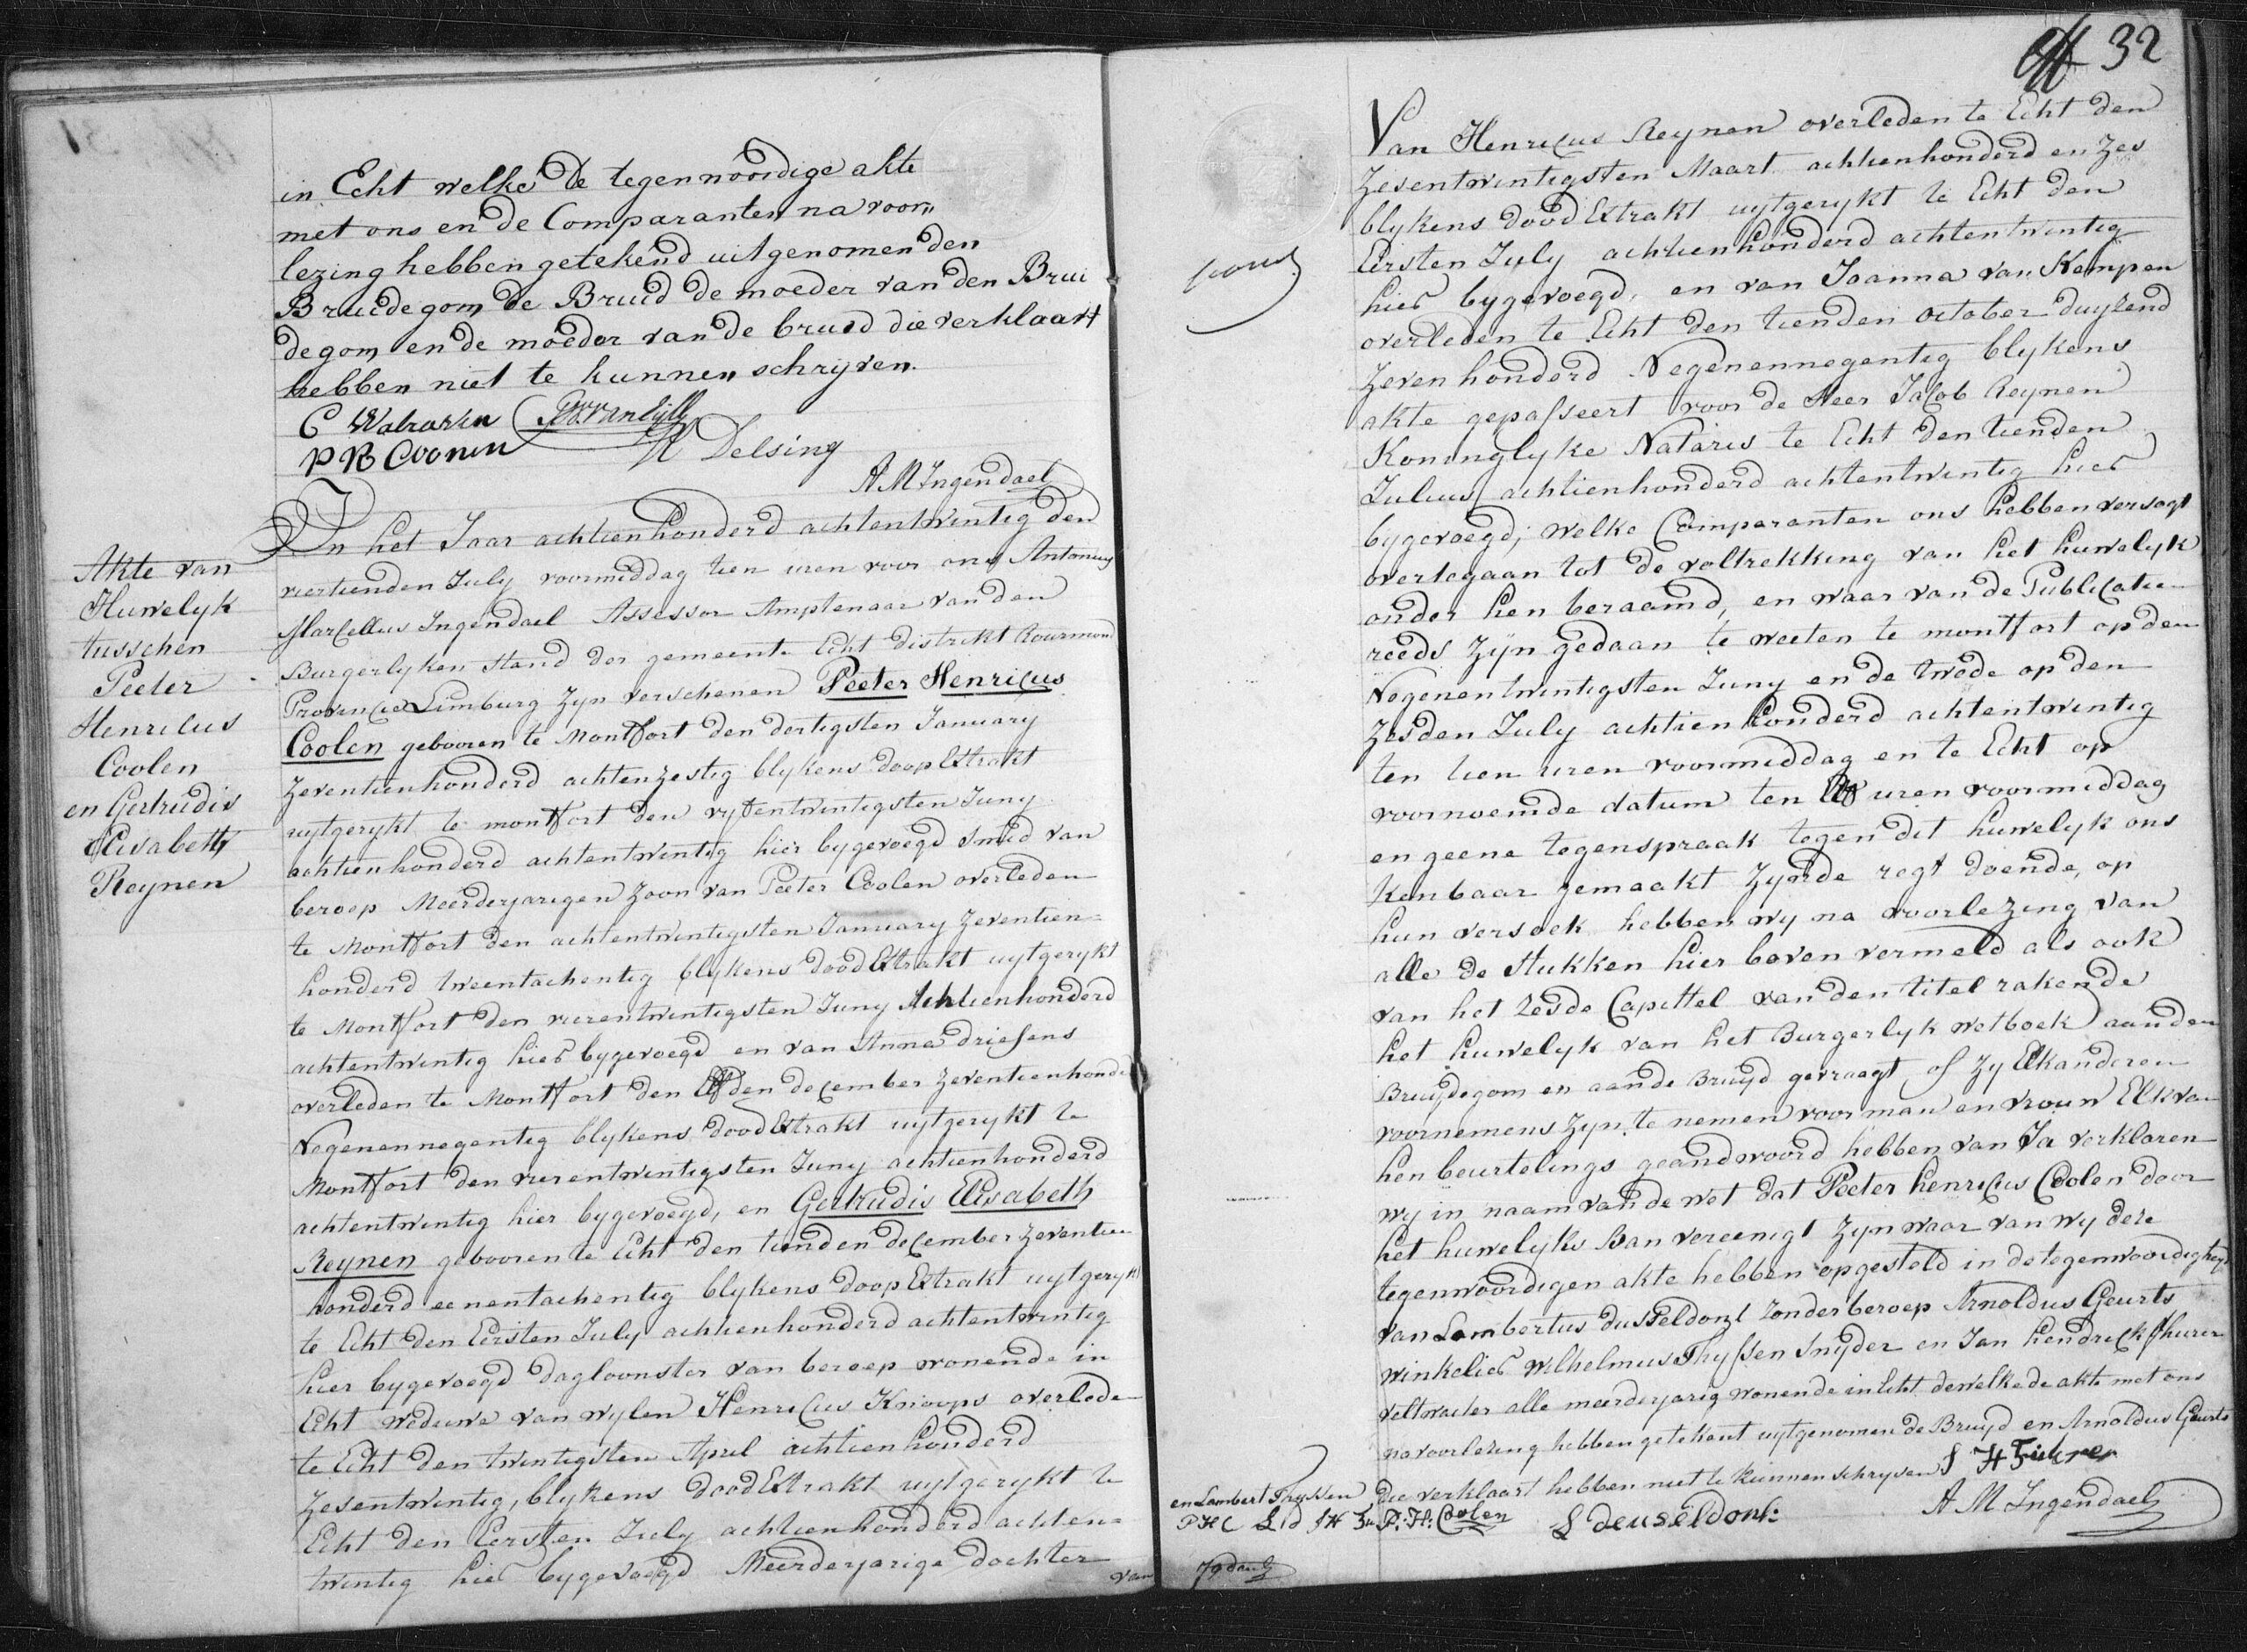 in Echt welke de tegenwoordige akte
met ons en de Comparanten na voor„
lezing hebben getekend uitgenomen den
Bruidegom de Bruid de moeder van den Brui
degom en de moeder van de bruid die verklaart
hebben niet te kunnen schryven.
C Walraven
P R Coonen
Delsing
A M Ingendael
Akte van
Huwelyk
tusschen
Peeter
Henricus
Coolen
en Gertrudis
Elisabeth
Reynen
In het Jaar achtienhonderd achtentwintig den
viertienden July voormiddag tien uren voor ons Antonius
Marcellus Ingendael Assessor Amptenaar van den
Burgerlyken stand der gemeente Echt distrikt Rourmond
Provincie Limburg zyn verschenen Peeter Henricus
Coolen gebooren te Montfort den dertigsten January
zeventienhonderd achtenzestig blykens doop Extrakt
uytgerykt te montfort den vyfentwintigsten Juny
achtienhonderd achtentwintig hier bygevoegd Smid van
beroep Meerderjarigen zoon van Peeter Coolen overleden
te Montfort den achtentwintigsten January zeventien=
honderd tweentachentig blykens dood Extrakt uytgerykt
te Montfort den vierentwintigsten Juny Achtienhonderd
achtentwintig hier bygevoegd en van Anna driesens
overleden te Montfort den Elfden december zeventienhonde
Negenennegentig blykens dood Extrakt uytgerykt te
Montfort den vierentwintigsten Juny achtienhonderd
achtentwintig hier bygevoegd, en Gertrudis Elisabeth
Reynen gebooren te Echt den tienden december zeventien
honderd eenentachentig blykens doop Extrakt uytgerykt
te Echt den Eersten July achtienhonderd achtentwintig
hier bygevoegd dagloonster van beroep wonende in
Echt weduwe van wylen Henricus Knoops overlede
te Echt den twintigsten April achtienhonderd
zesentwintig, blykens dood Extrakt uytgerykt te
Echt den Eersten July achtienhonderd achten=
twintig hier bygevoegd Meerderjarige dochter
van
32
Van Henricus Reynen overleden te Echt den
zesentwintigsten Maart achtienhonderd en zes
blykens dood Extrakt uytgerykt te Echt den
Eersten July achtienhonderd achtentwintig
hier bygevoegd, en van Joanna van Kempen
overleden te Echt den tienden october duyzend
zevenhonderd Negenennegentig blykens
akte gepasseert voor de Heer Jacob Reynen
Koninglyke Nataris te Echt den tienden
Julius achtienhonderd achtentwintig hier
bygevoegd; welke Comparanten ons hebben versogt
overtegaan tot de voltrekking van het huwelyk
onder hen beraamd, en waar van de Publicatie
reeds zyn gedaan te weeten te montfort op den
Negenentwintigsten Juny en de twede op den
zesden July achtienhonderd achtentwintig
ten tien uren voormiddag en te Echt op
voornoemde datum ten Elf uren voormiddag
en geene tegenspraak tegen dit huwelyk ons
kenbaar gemaakt zynde regt doende, op
hun versoek hebben wy na voorlezing van
alle de stukken hier boven vermeld als ook
van het zesde Capittel van den titel rakende
het huwelyk van het Burgerlyk wetboek aan den
Bruydegom en aan de Bruyd gevraagt of zy Elkanderen
voornemens zyn te nemen voor man en vrouw Elk van
hen beurtelings geandwoord hebben van Ja verklaren
wy in naam van de wet dat Peeter henricus Coolen door
het huwelyks Ban vereenigt zyn waar van wy deze
tegenwoordigen akte hebben opgesteld in de tegenwoordigheyd
van Lambertus dusseldonk zonder beroep Arnoldus Geurts
winkelier Wilhelmus Thyssen Snyder en Jan hendrick
veltwachter alle meerderjarig wonende in Echt dewelke de akte met ons
na voorlezing hebben getekent uytgenomen de Bruyd en Arnoldus Geurts
en Lambert Thyssen die verklaart hebben niet te kunnen schryven
P H C P: H: Coolen L deuseldonk A M Ingendael